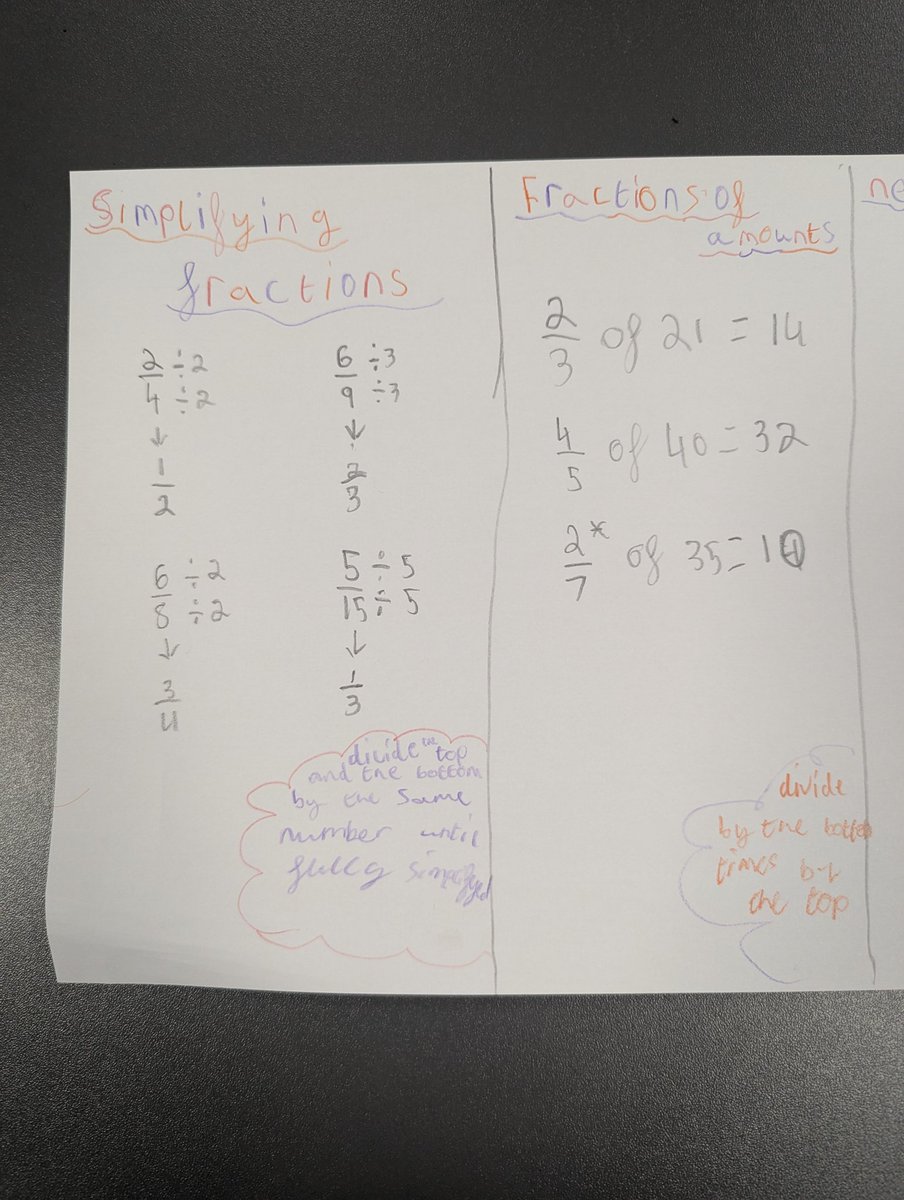 Simplifying
fractions
2 ÷2
4 ÷2
↓
1
2
6 ÷3
9 ÷3
↓
2
3
6 ÷2
8 ÷2
↓
3
4
5 ÷ 5
15 ÷ 5
↓
1
3
divide the top
and the bottom
by the same
number until
fully simplifyed
Fractions of
amounts
2/3 of 21 = 14
4/5 of 40 = 32
2*/7 of 35 = 10
divide
by the bottom
times by
the top
ne